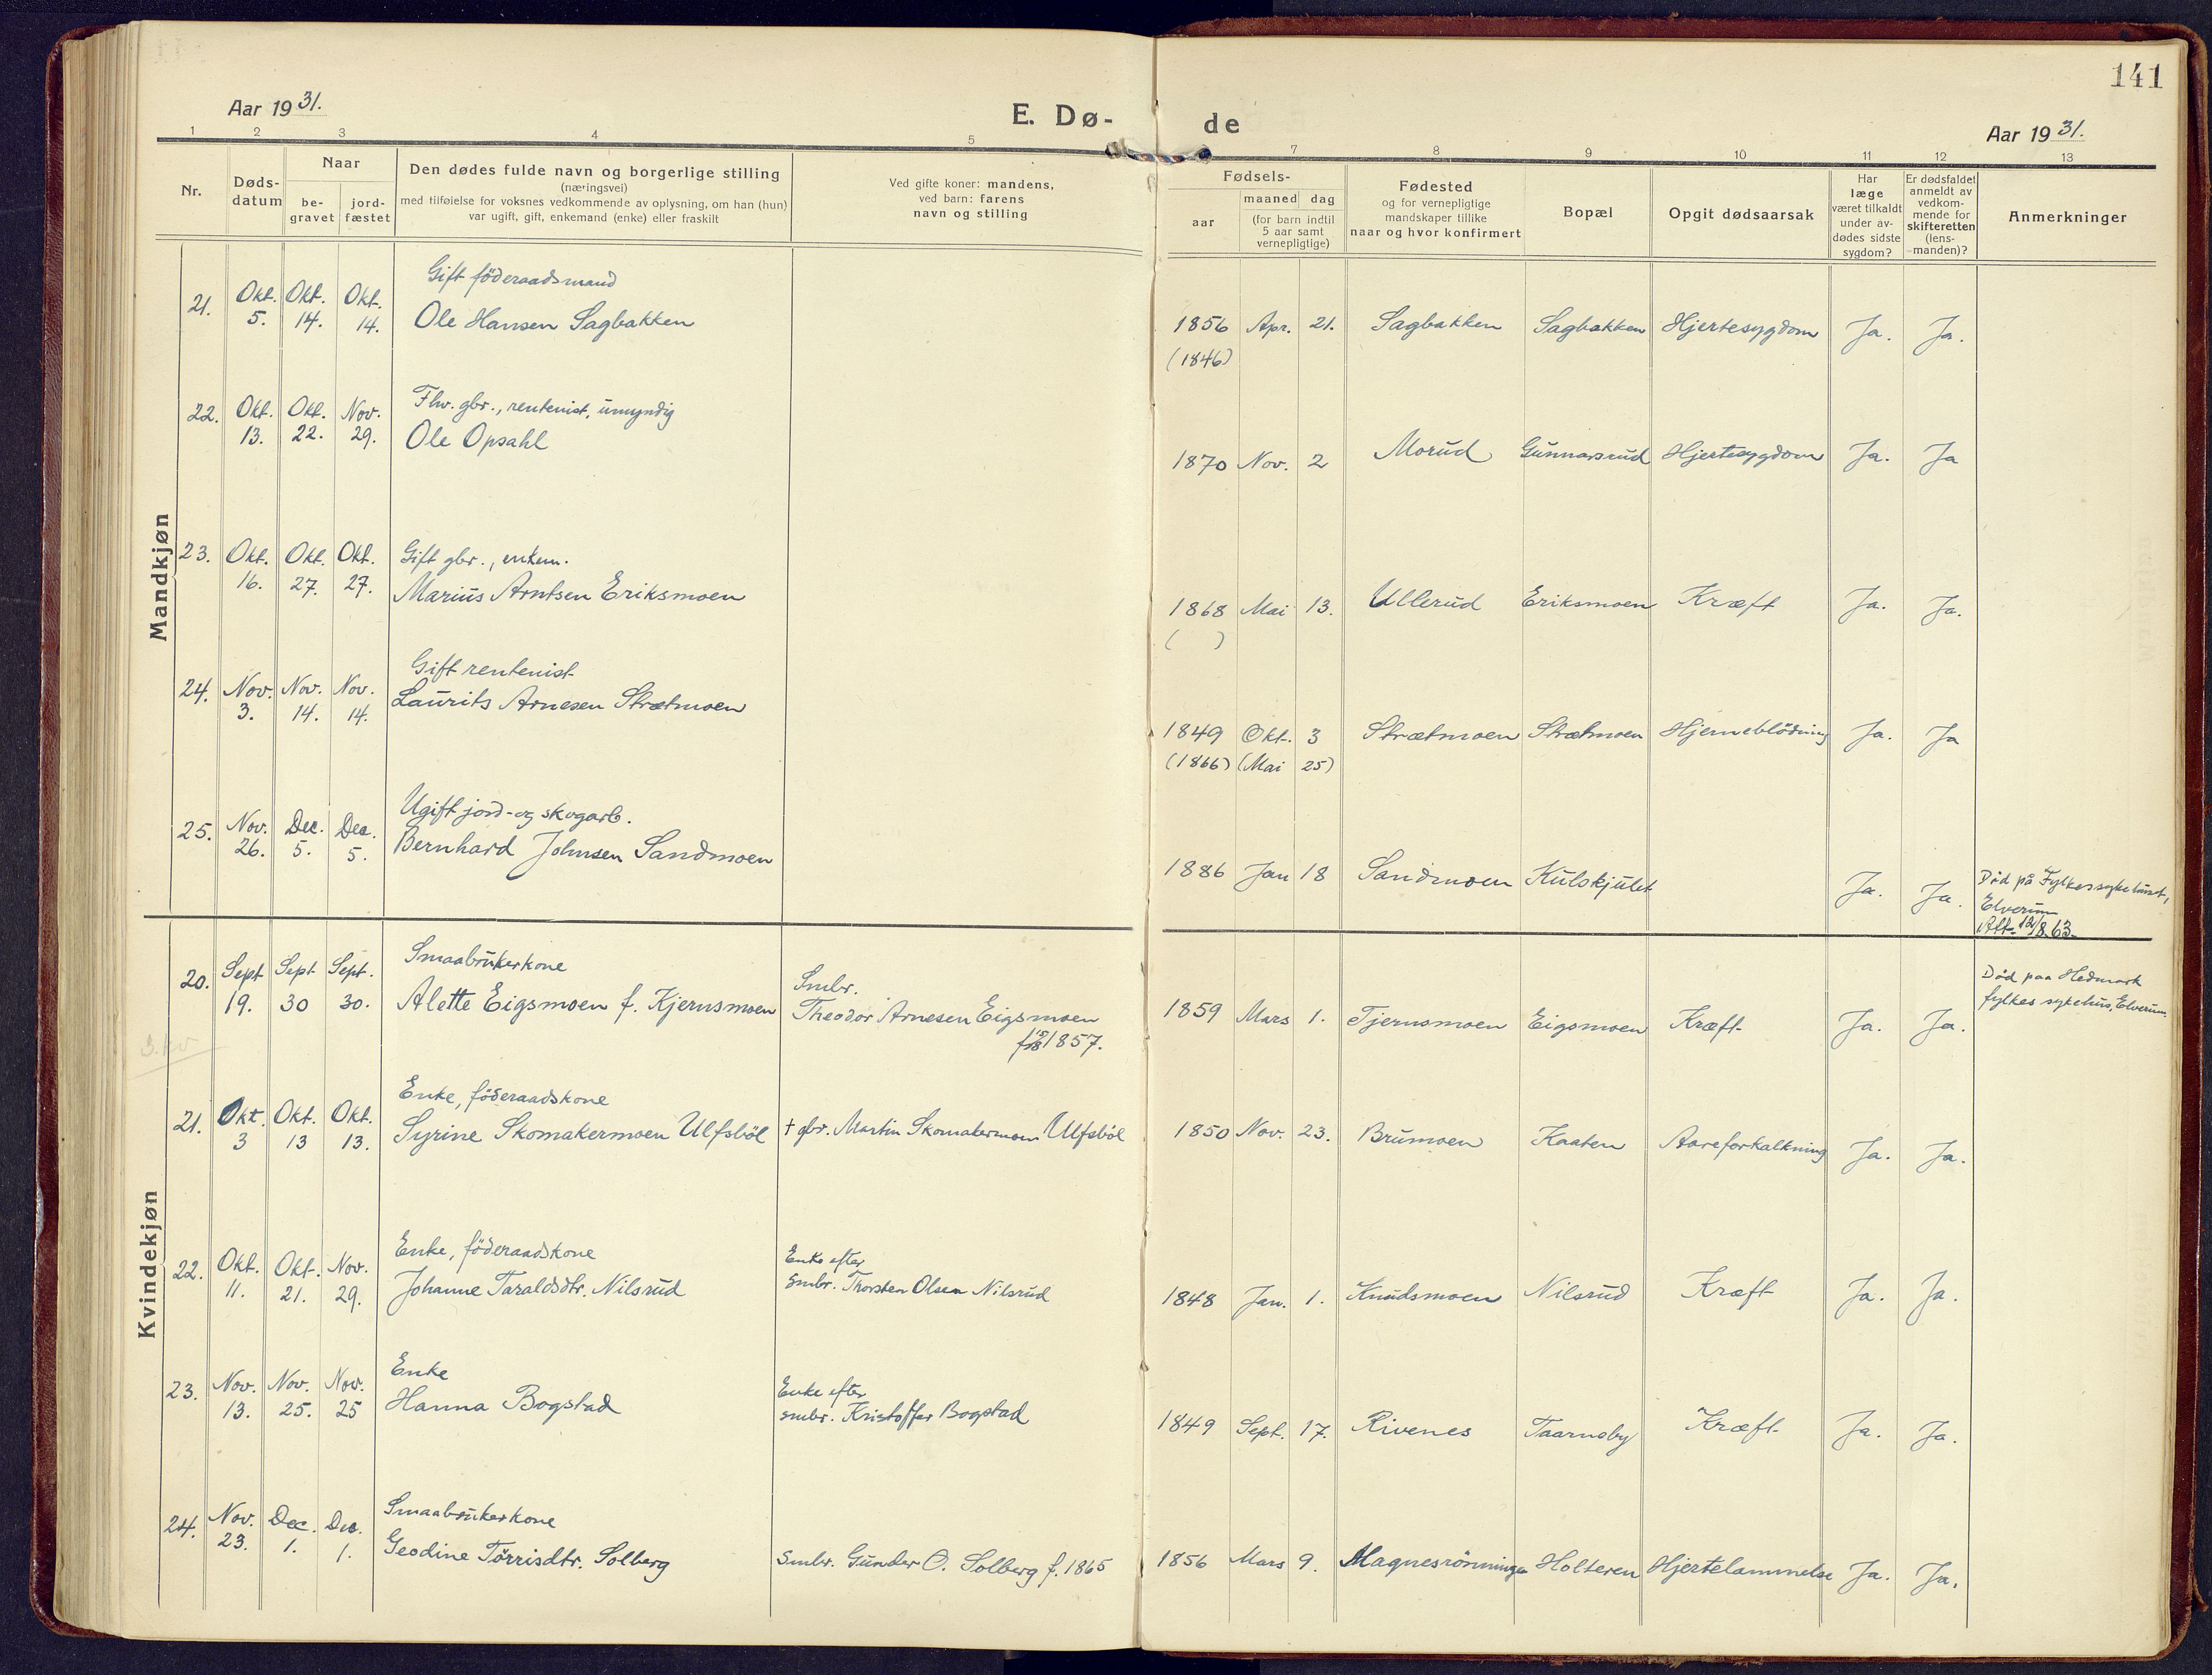 141
Aar 1931.
E. Dø-
de
Aar 1931.
1 2 3 4 5 7 8 9 10 11 12 13
Nr.
Døds-
datum
Naar
be-
gravet
jord-
fæstet
Den dødes fulde navn og borgerlige stilling
(næringsvei)
med tilføielse for voksnes vedkommende av oplysning, om han (hun)
var ugift, gift, enkemand (enke) eller fraskilt
Ved gifte koner: mandens,
ved barn: farens
navn og stilling
Fødsels-
aar
maaned dag
(for barn indtil
5 aar samt
vernepligtige)
Fødested
og for vernepligtige
mandskaper tillike
naar og hvor konfirmert
Bopæl
Opgit dødsaarsak
Har
læge
været tilkaldt
under av-
dødes sidste
sygdom?
Er dødsfaldet
anmeldt av
vedkom-
mende for
skifteretten
(lens-
manden)?
Anmerkninger
Mandkjøn
Gift föderaadsmand
21. Okt. 5. Okt. 14. Okt. 14. Ole Hansen Sagbakken
1856 Apr. 21. Sagbakken Sagbakken Hjertesygdom Ja. Ja.
(1846)
Fhv. gbr., rentenist, umyndig
22. Okt. 13. Okt. 22. Nov. 29. Ole Opsahl
1870 Nov. 2 Morud Gunnarsrud Hjertesygdom Ja. Ja
Gift gbr., enkem.
23. Okt. 16. Okt. 27. Okt. 27. Marius Arntsen Eriksmoen
1868 Mai 13. Ullerud Eriksmoen Kræft Ja. Ja.
( )
Gift rentenist
24. Nov. 3. Nov. 14. Nov. 14. Laurits Arnesen Strætmoen
1849 Okt. 3 Strætmoen Strætmoen Hjerneblödning Ja. Ja
(1866) (Mai 25)
Ugift jord- og skogarb.
25. Nov. 26. Dec. 5. Dec. 5. Bernhard Johnsen Sandmoen
1886 Jan 18 Sandmoen Kulskjulet Ja. Ja.
Död på Fylkessykehuset,
Elverum
Att. 12/8.63.
Kvindekjøn
Smaabrukerkone
20. Sept 19. Sept 30 Sept. 30. Alette Eigsmoen f. Kjernsmoen
Smbr.
Theodor Arnesen Eigsmoen
1857.
1859 Mars 1. Tjernsmoen Eigsmoen Kræft Ja. Ja.
Död paa Hedmark
fylkes sykehus, Elverum.
3. kv
Enke, föderaadskone
21. Okt. 3 Okt. 13 Okt. 13. Syrine Skomakermoen Ulfsböl
† gbr. Martin Skomakermoen Ulfsböl
1850 Nov. 23. Brumoen Kaaten Aareforkalkning Ja. Ja.
Enke, föderaadskone
22. Okt. 11. Okt. 21. Nov. 29. Johanne Taraldsdtr. Nilsrud
Enke efter
smbr. Thorsten Olsen Nilsrud
1848 Jan. 1. Knudsmoen Nilsrud Kræft Ja. Ja.
Enke
23. Nov. 13. Nov. 25. Nov. 25 Hanna Bogstad
Enke efter
smbr. Kristoffer Bogstad
1849 Sept. 17. Rivenes Taarneby Kræft Ja. Ja.
Smaabrukerkone
24. Nov. 23. Dec. 1. Dec. 1. Geodine Tørrisdtr. Solberg
Smbr. Gunder O. Solberg f. 1865
1856 Mars 9. Magnesrönninga Holteren Hjertelammelse Ja. Ja.